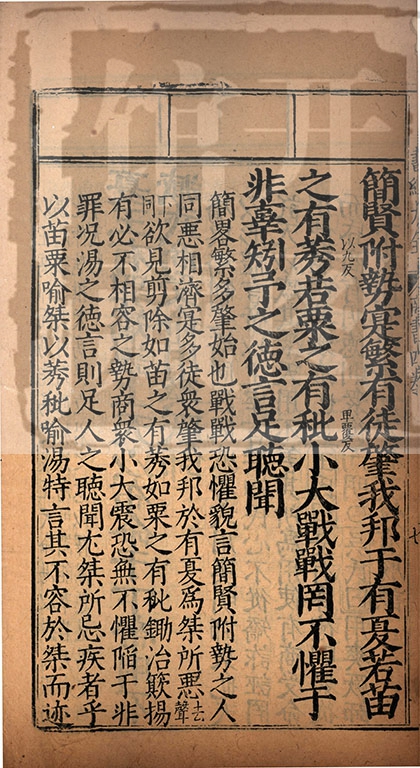 簡賢附勢寔繁有徒肇我邦于有夏若苗
之有莠若粟之有秕小大戰戰罔不懼于
以九反
卑履反
非辜矧予之德言足聽聞
簡畧繁多肇始也戰戰恐懼貌言簡賢附勢之人
同惡相濟寔多徒衆肇我邦於有夏為桀所惡去聲
下同欲見剪除如苗之有莠如粟之有秕鋤治簸揚
有必不相容之勢商衆小大震恐無不懼陷于非
罪况湯之德言則足人之聽聞尤桀所忌疾者乎
以苗粟喻桀以莠秕喻湯特言其不容於桀而迹